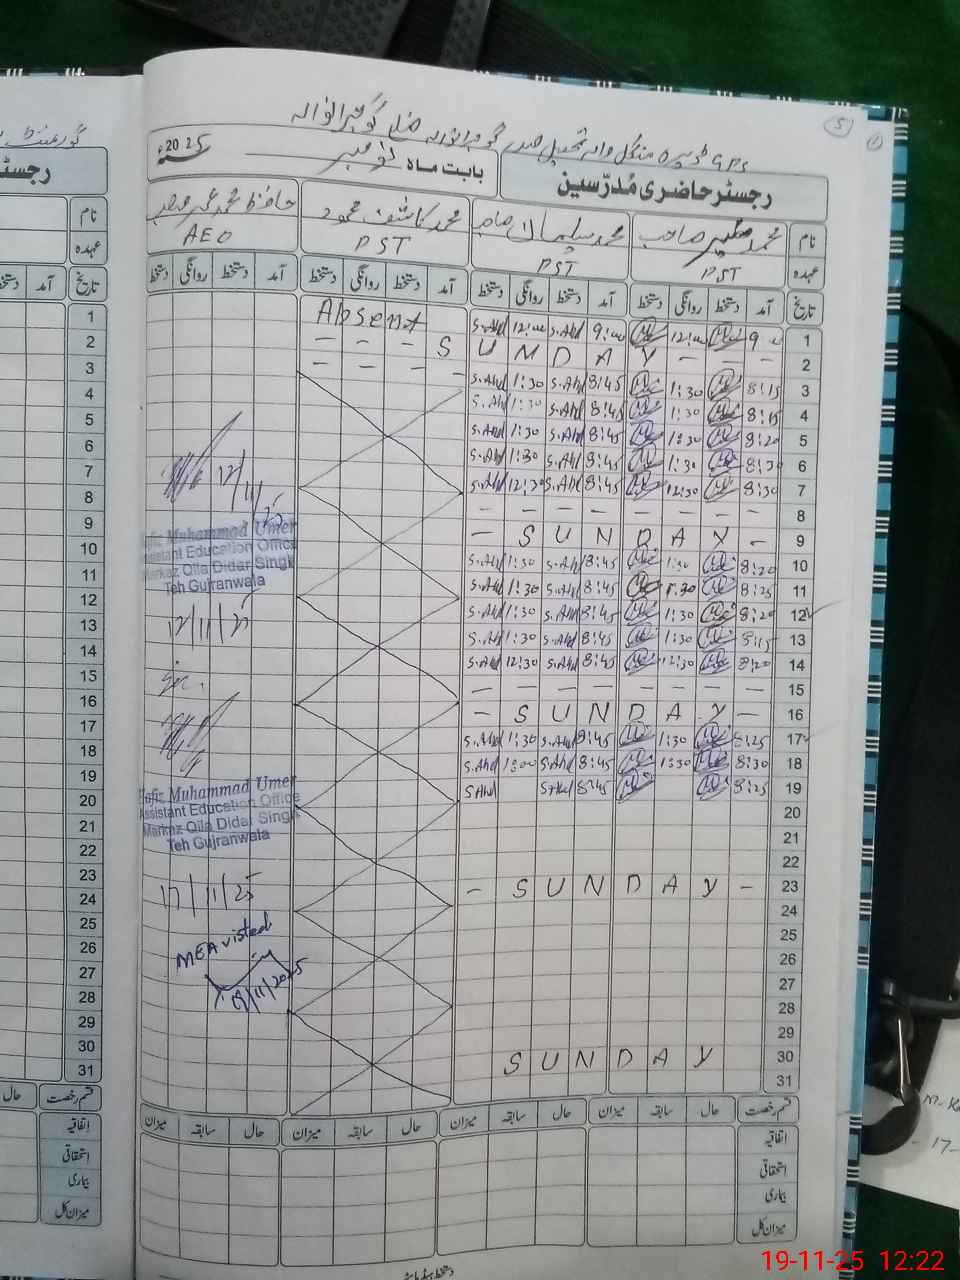 5
سنہ 2025ء
بابت ماہ نومبر
رجسٹر حاضری مُدرّسین
نام محمد صاحب محمد صاحب محمد کاشف محمود حافظ محمد عمیر
عہدہ PST PST PST AEO
تاریخ آمد دستخط روانگی دستخط آمد دستخط روانگی دستخط آمد دستخط روانگی دستخط آمد دستخط روانگی دستخط
Absent S.Ahd 12:00 S.Ahd 9:00 12:00 9 00 1
- - - S U N D A Y - - - 2
- - - - S.Ahd 1:30 S.Ahd 8:45 1:30 8:15 3
S.Ahd 1:30 S.Ahd 8:45 1:30 8:15 4
S.Ahd 1:30 S.Ahd 8:45 1:30 8:20 5
S.Ahd 1:30 S.Ahd 8:45 1:30 8:30 6
S.Ahd 12:30 S.Ahd 8:45 12:30 8:30 7
- - - - - - - - 8
- S U N D A Y - 9
S.Ahd 1:30 S.Ahd 8:45 1:30 8:20 10
S.Ahd 1:30 S.Ahd 8:45 1:30 8:25 11
S.Ahd 1:30 S.Ahd 8:45 1:30 8:20 12
S.Ahd 1:30 S.Ahd 8:45 1:30 8:15 13
S.Ahd 12:30 S.Ahd 8:45 12:30 8:20 14
- - - - - - - - 15
- S U N D A Y - 16
S.Ahd 1:30 S.Ahd 8:45 1:30 8:25 17
S.Ahd 1:00 S.Ahd 8:45 1:30 8:30 18
S.Ahd S.Ahd 8:45 8:25 19
20
21
22
- S U N D A Y - 23
24
25
26
27
28
29
S U N D A Y 30
31
12/11/25
Hafiz Muhammad Umer
Assistant Education Officer
Markaz Qila Didar Singh
Teh Gujranwala
12/11/25
Hafiz Muhammad Umer
Assistant Education Office
Markaz Qila Didar Singh
Teh Gujranwala
17/11/25
MEA visted
19/11/2025
قسم رخصت حال سابقہ میزان حال سابقہ میزان حال سابقہ میزان حال سابقہ میزان
اتفاقیہ
استحقاقی
بیماری
میزان کل
رجسٹر
نام
عہدہ
تاریخ آمد دستخط
1
2
3
4
5
6
7
8
9
10
11
12
13
14
15
16
17
18
19
20
21
22
23
24
25
26
27
28
29
30
31
قسم رخصت حال
اتفاقیہ
استحقاقی
بیماری
میزان کل
19-11-25 12:22